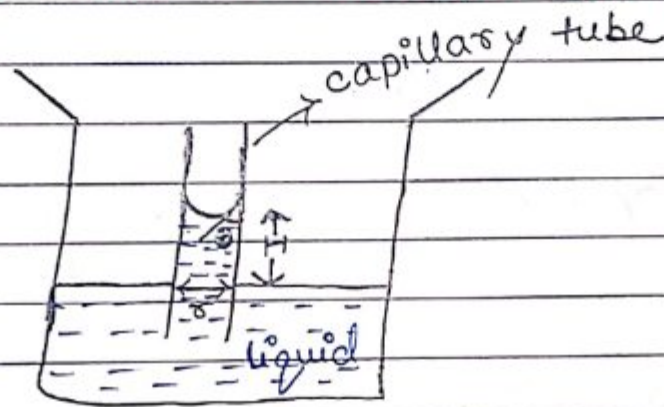 capillary tube
θ
H
r
liquid